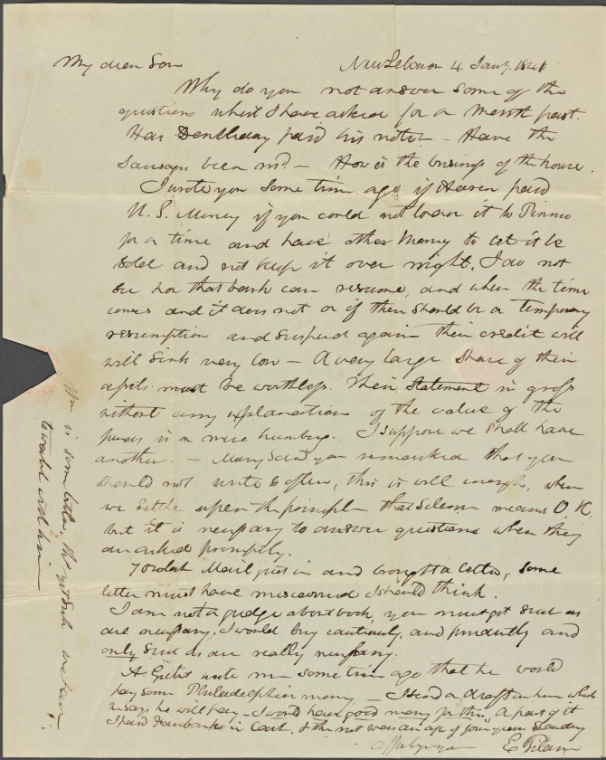 My dear Son New Lebanon 4 Jany. 1841
Why do you not answer some of the
questions which I have asked for a month past.
Has paid his note - Have the
Sausages been - How is the business of the house.
I wrote you some time ago if Haven paid
U. S. Money if you could not loan it to
for a time and have other money to let it be
sold and not keep it over night, I do not
see how that bank can resume, and when the time
comes and it does not or if there should be a temporary
resumption and suspend again their credit will
will sink very low - A very large share of their
assets must be worthless. Their Statement in gross
without any explanation of the value of the
is a mere humbug. I suppose we shall have
another - Mary said you remarked that you
should not write so often, this is well enough, when
we settle upon the principle that Silence means O. K.
but it is necessary to answer questions when they
are asked promptly.
Mail just in and brought a letter, some
letter must have miscarried I should think.
I am not a judge about books, you must get such as
are necessary, I would buy cautiously, and prudently and
only such as are really necessary.
A wrote me some time ago that he would
pay some Philadelphia money - I send a draft on him which
he will pay - I would have good money for this, A part of it
I paid Fairbanks in Cash,
affectly yr E Tilden
is some better, tho yet sick we have
to watch with him